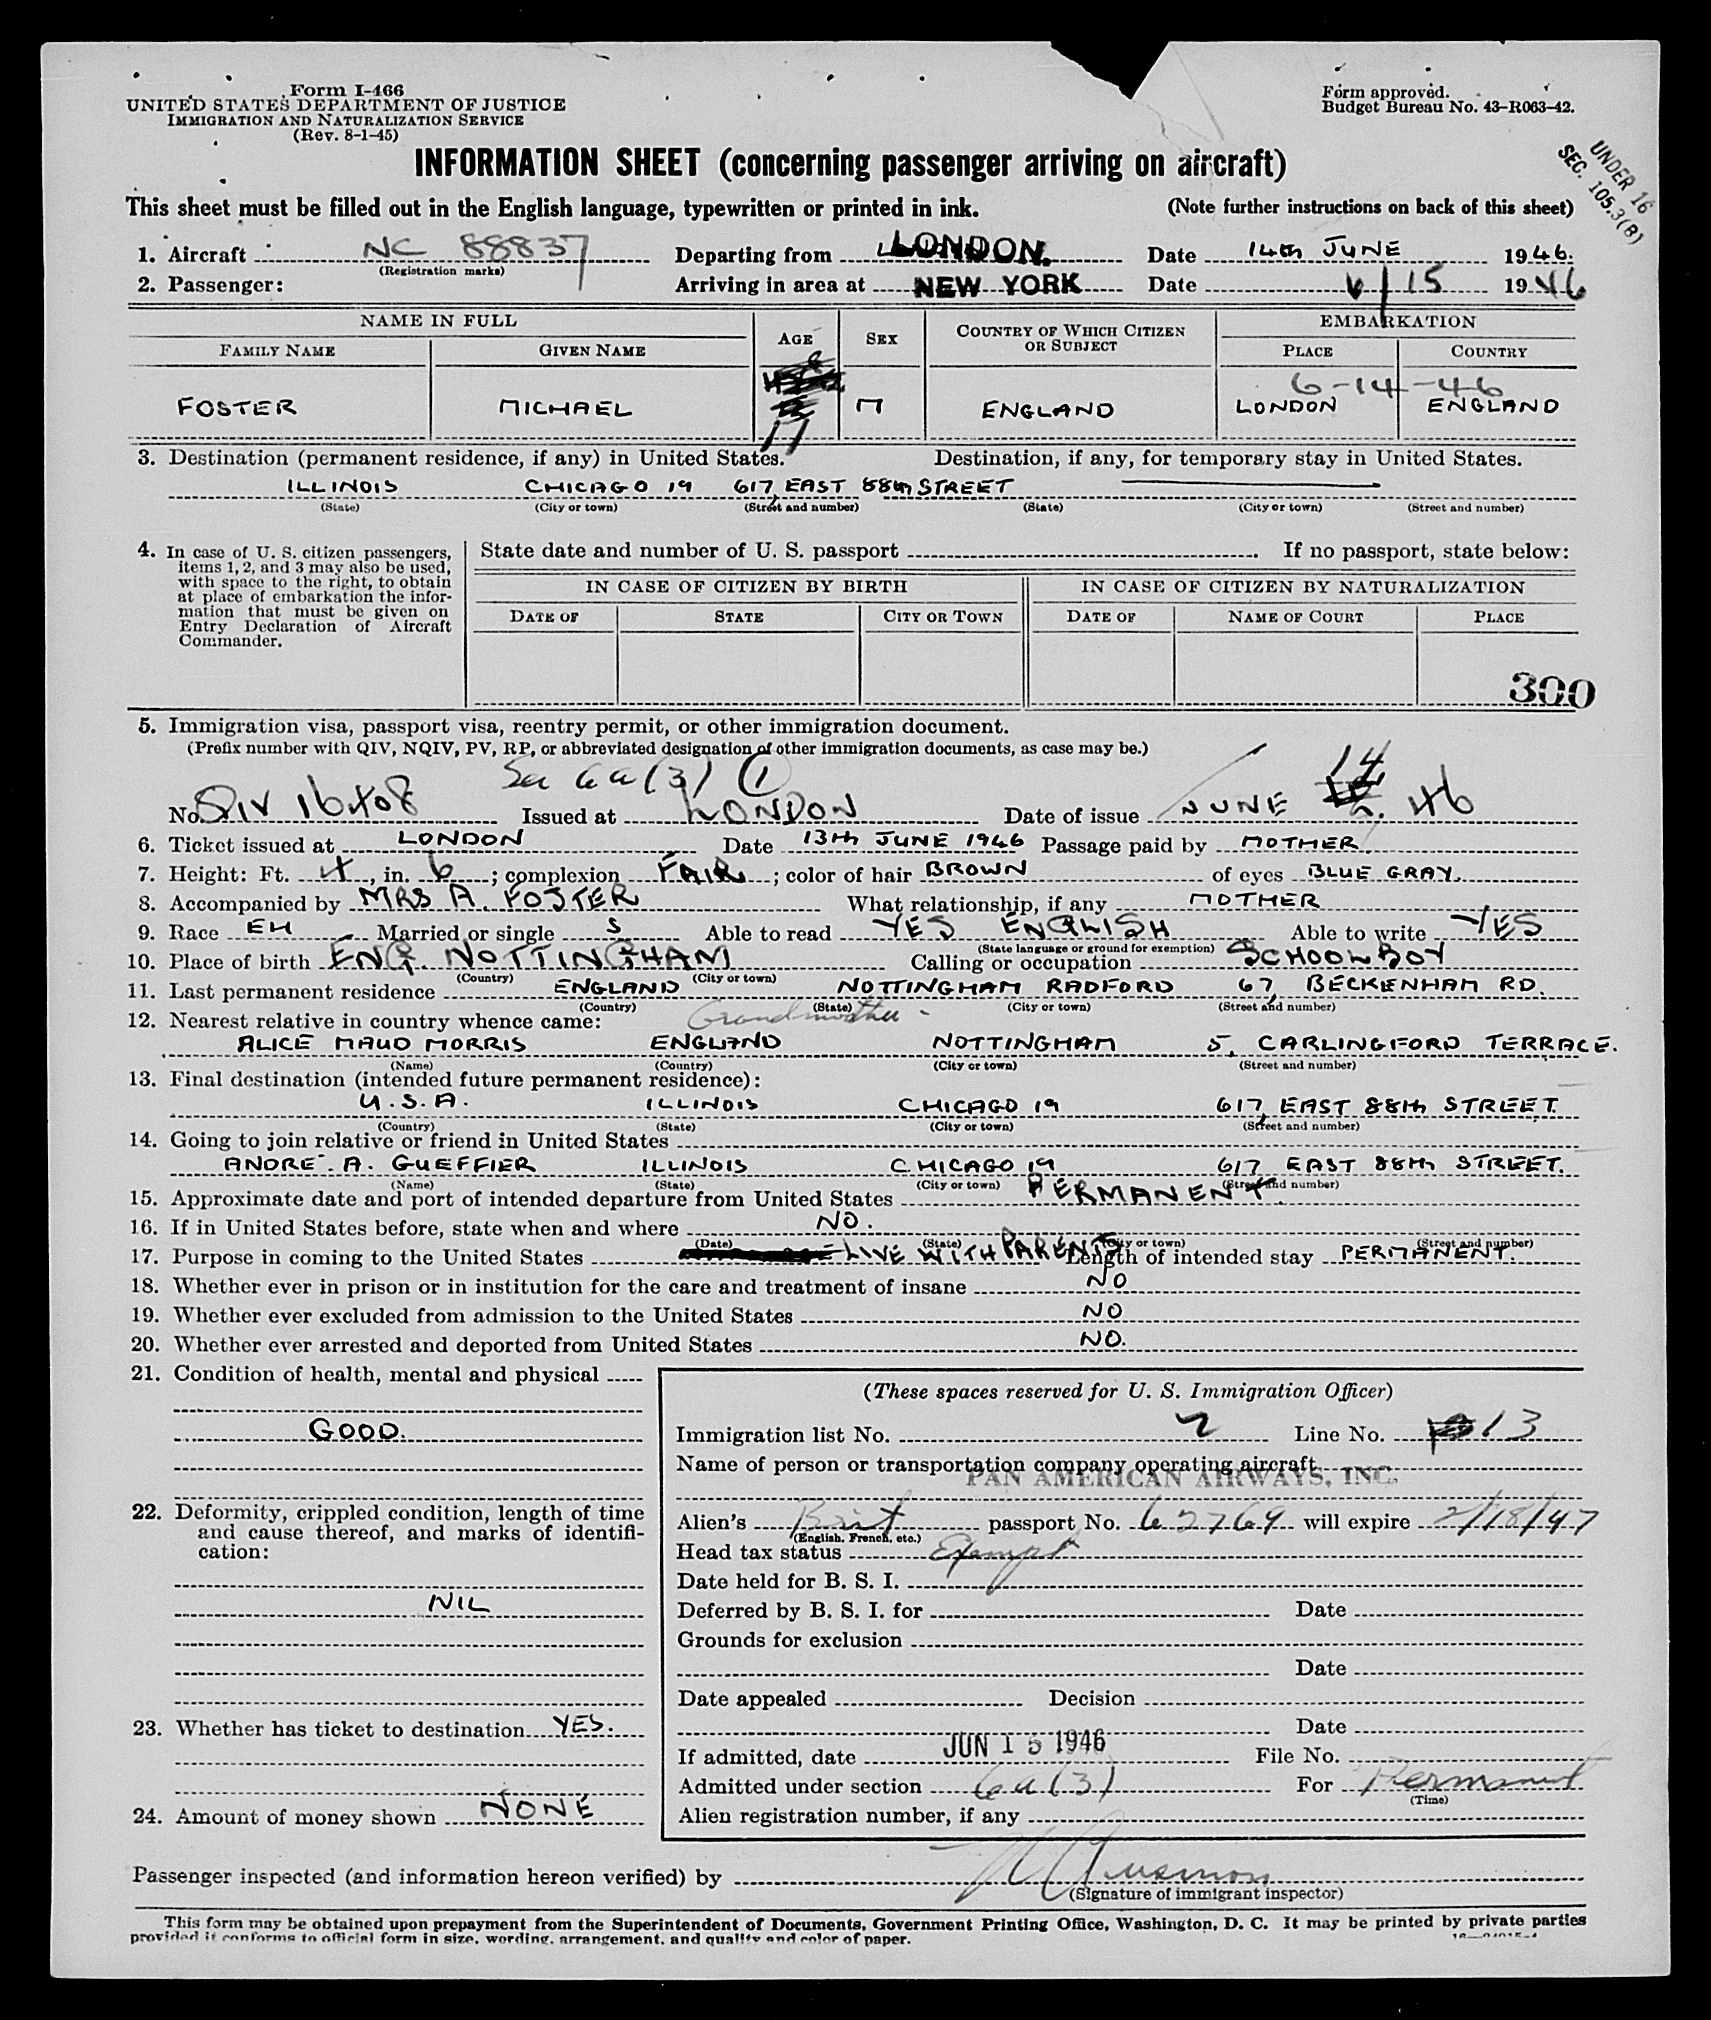 Form I-466
UNITED STATES DEPARTMENT OF JUSTICE
IMMIGRATION AND NATURALIZATION SERVICE
(Rev. 8-1-45)
Form approved.
Budget Bureau No. 43-R063-42.
UNDER 16
SEC. 105.3(B)
INFORMATION SHEET (concerning passenger arriving on aircraft)
This sheet must be filled out in the English language, typewritten or printed in ink. (Note further instructions on back of this sheet)
1. Aircraft NC 88837 Departing from LONDON. Date 14th JUNE 1946.
(Registration marks)
2. Passenger: Arriving in area at NEW YORK Date 6/15 1946
NAME IN FULL AGE SEX COUNTRY OF WHICH CITIZEN OR SUBJECT EMBARKATION
FAMILY NAME GIVEN NAME PLACE COUNTRY
6-14-46
FOSTER MICHAEL 11 M ENGLAND LONDON ENGLAND
3. Destination (permanent residence, if any) in United States. Destination, if any, for temporary stay in United States.
ILLINOIS CHICAGO 19 617, EAST 88th STREET
(State) (City or town) (Street and number) (State) (City or town) (Street and number)
4. In case of U. S. citizen passengers, items 1, 2, and 3 may also be used, with space to the right, to obtain at place of embarkation the information that must be given on Entry Declaration of Aircraft Commander.
State date and number of U. S. passport . If no passport, state below:
IN CASE OF CITIZEN BY BIRTH IN CASE OF CITIZEN BY NATURALIZATION
DATE OF STATE CITY OR TOWN DATE OF NAME OF COURT PLACE
300
5. Immigration visa, passport visa, reentry permit, or other immigration document.
(Prefix number with QIV, NQIV, PV, RP, or abbreviated designation of other immigration documents, as case may be.)
Sec 6a(3) (1)
No. QIV 16408 Issued at LONDON Date of issue JUNE 14 46
6. Ticket issued at LONDON Date 13th JUNE 1946 Passage paid by MOTHER
7. Height: Ft. 4, in. 6; complexion FAIR; color of hair BROWN of eyes BLUE GRAY.
8. Accompanied by MRS A. FOSTER What relationship, if any MOTHER
9. Race EH Married or single S Able to read YES ENGLISH Able to write YES
(State language or ground for exemption)
10. Place of birth ENG. NOTTINGHAM Calling or occupation SCHOOLBOY
(Country) (City or town)
11. Last permanent residence ENGLAND NOTTINGHAM RADFORD 67, BECKENHAM RD.
(Country) (State) (City or town) (Street and number)
12. Nearest relative in country whence came: Grandmother -
ALICE MAUD MORRIS ENGLAND NOTTINGHAM 5, CARLINGFORD TERRACE.
(Name) (Country) (City or town) (Street and number)
13. Final destination (intended future permanent residence):
U.S.A. ILLINOIS CHICAGO 19 617, EAST 88th STREET.
(Country) (State) (City or town) (Street and number)
14. Going to join relative or friend in United States
ANDRE. A. GUEFFIER ILLINOIS CHICAGO 19 617, EAST 88th STREET.
(Name) (State) (City or town) (Street and number)
15. Approximate date and port of intended departure from United States PERMANENT.
16. If in United States before, state when and where NO.
(Date) (State) (City or town) (Street and number)
17. Purpose in coming to the United States LIVE WITH PARENTS Length of intended stay PERMANENT.
18. Whether ever in prison or in institution for the care and treatment of insane NO
19. Whether ever excluded from admission to the United States NO
20. Whether ever arrested and deported from United States NO.
21. Condition of health, mental and physical
GOOD.
22. Deformity, crippled condition, length of time and cause thereof, and marks of identification:
NIL
23. Whether has ticket to destination YES.
24. Amount of money shown NONE
(These spaces reserved for U. S. Immigration Officer)
Immigration list No. 2 Line No. 13
Name of person or transportation company operating aircraft
PAN AMERICAN AIRWAYS, INC.
Alien's Brit passport No. 62769 will expire 2/18/47
(English, French, etc.)
Head tax status Exempt
Date held for B. S. I.
Deferred by B. S. I. for Date
Grounds for exclusion
Date
Date appealed Decision
Date
If admitted, date JUN 15 1946 File No.
Admitted under section 6a(3) For Permanent
(Time)
Alien registration number, if any
Passenger inspected (and information hereon verified) by
(Signature of immigrant inspector)
This form may be obtained upon prepayment from the Superintendent of Documents, Government Printing Office, Washington, D. C. It may be printed by private parties
provided it conforms to official form in size, wording, arrangement, and quality and color of paper.